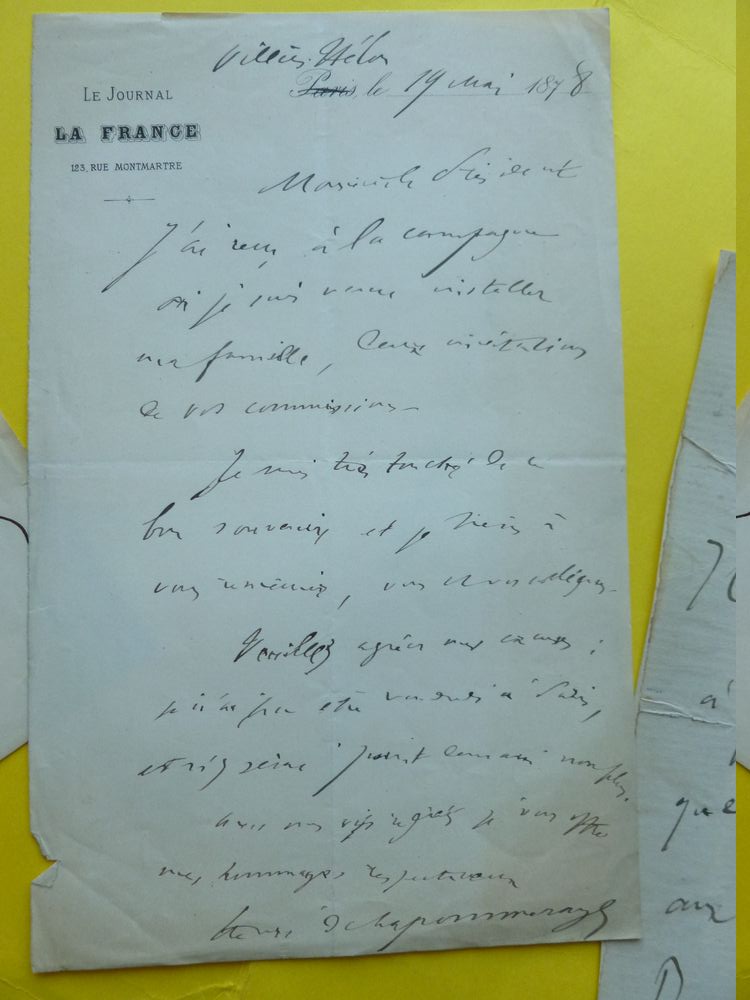 Villiers Hélon
Paris le 19 Mai 1878
LE JOURNAL
LA FRANCE
123, RUE MONTMARTRE
Monsieur le Président
J'ai reçu à la campagne
où je suis venu installer
ma famille, deux invitations
de vos commissions
Je suis très touché de ce
bon souvenir et je tiens à
vous remercier, vous et vos collègues.
Veuillez agréer mes excuses ;
je n'ai pu être vendredi à Paris,
et n'y serai point demain non plus.
avec mes vifs regrets je vous offre
mes hommages respectueux
Henri de Lapommeraye
à
que
au